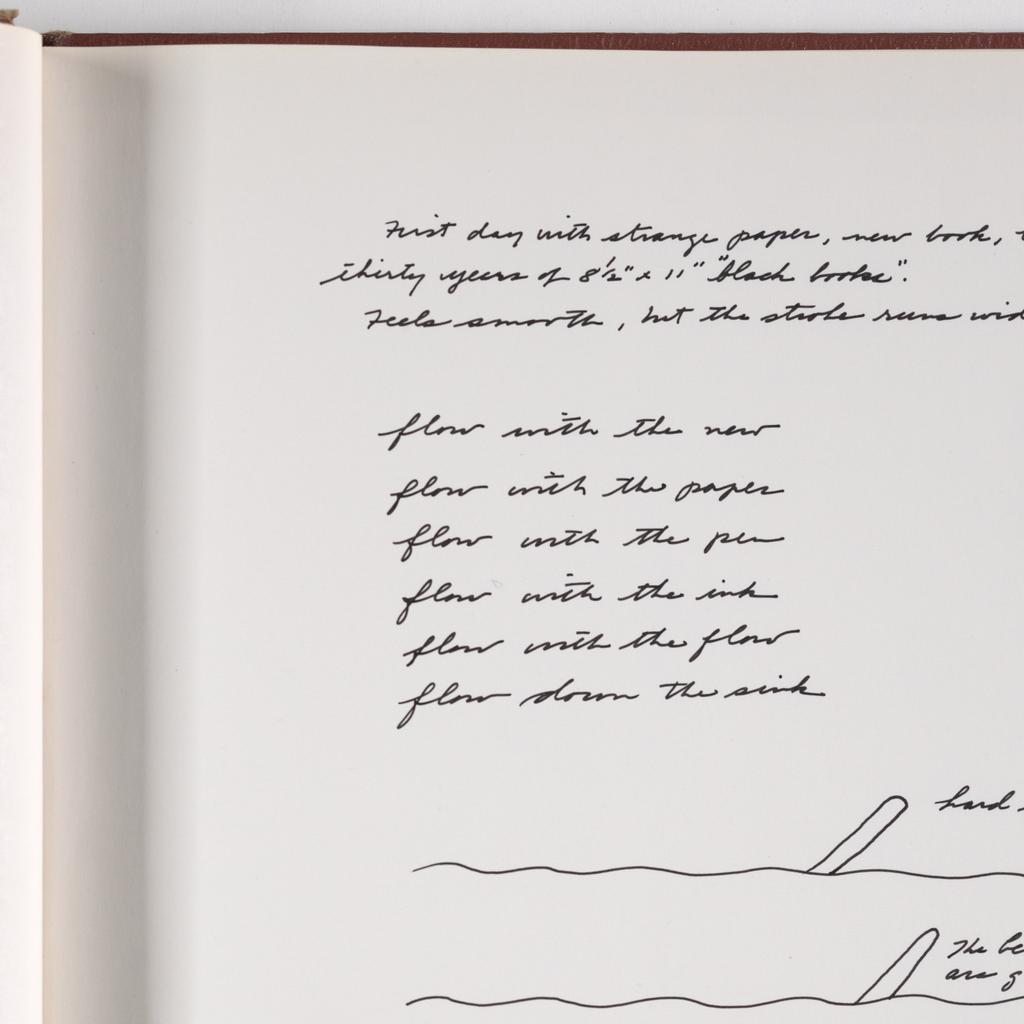 First day with strange paper, new book,
thirty years of 8½" x 11" "black books".
Feels smooth, but the stroke runs
flow with the new
flow with the paper
flow with the pen
flow with the ink
flow with the flow
flow down the sink
hard
The
are